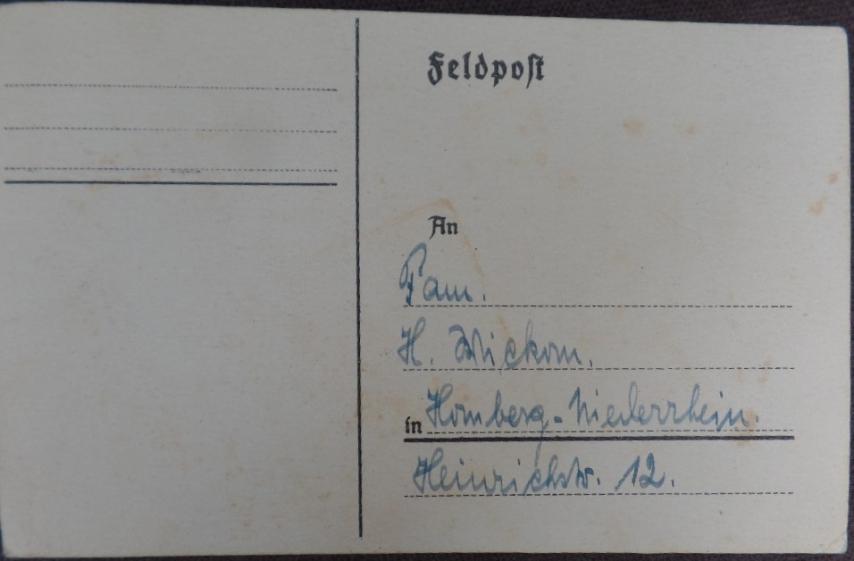 Feldpost
An
Fam.
H. Wickom.
in Homberg-Niederrhein.
Heinrichstr. 12.